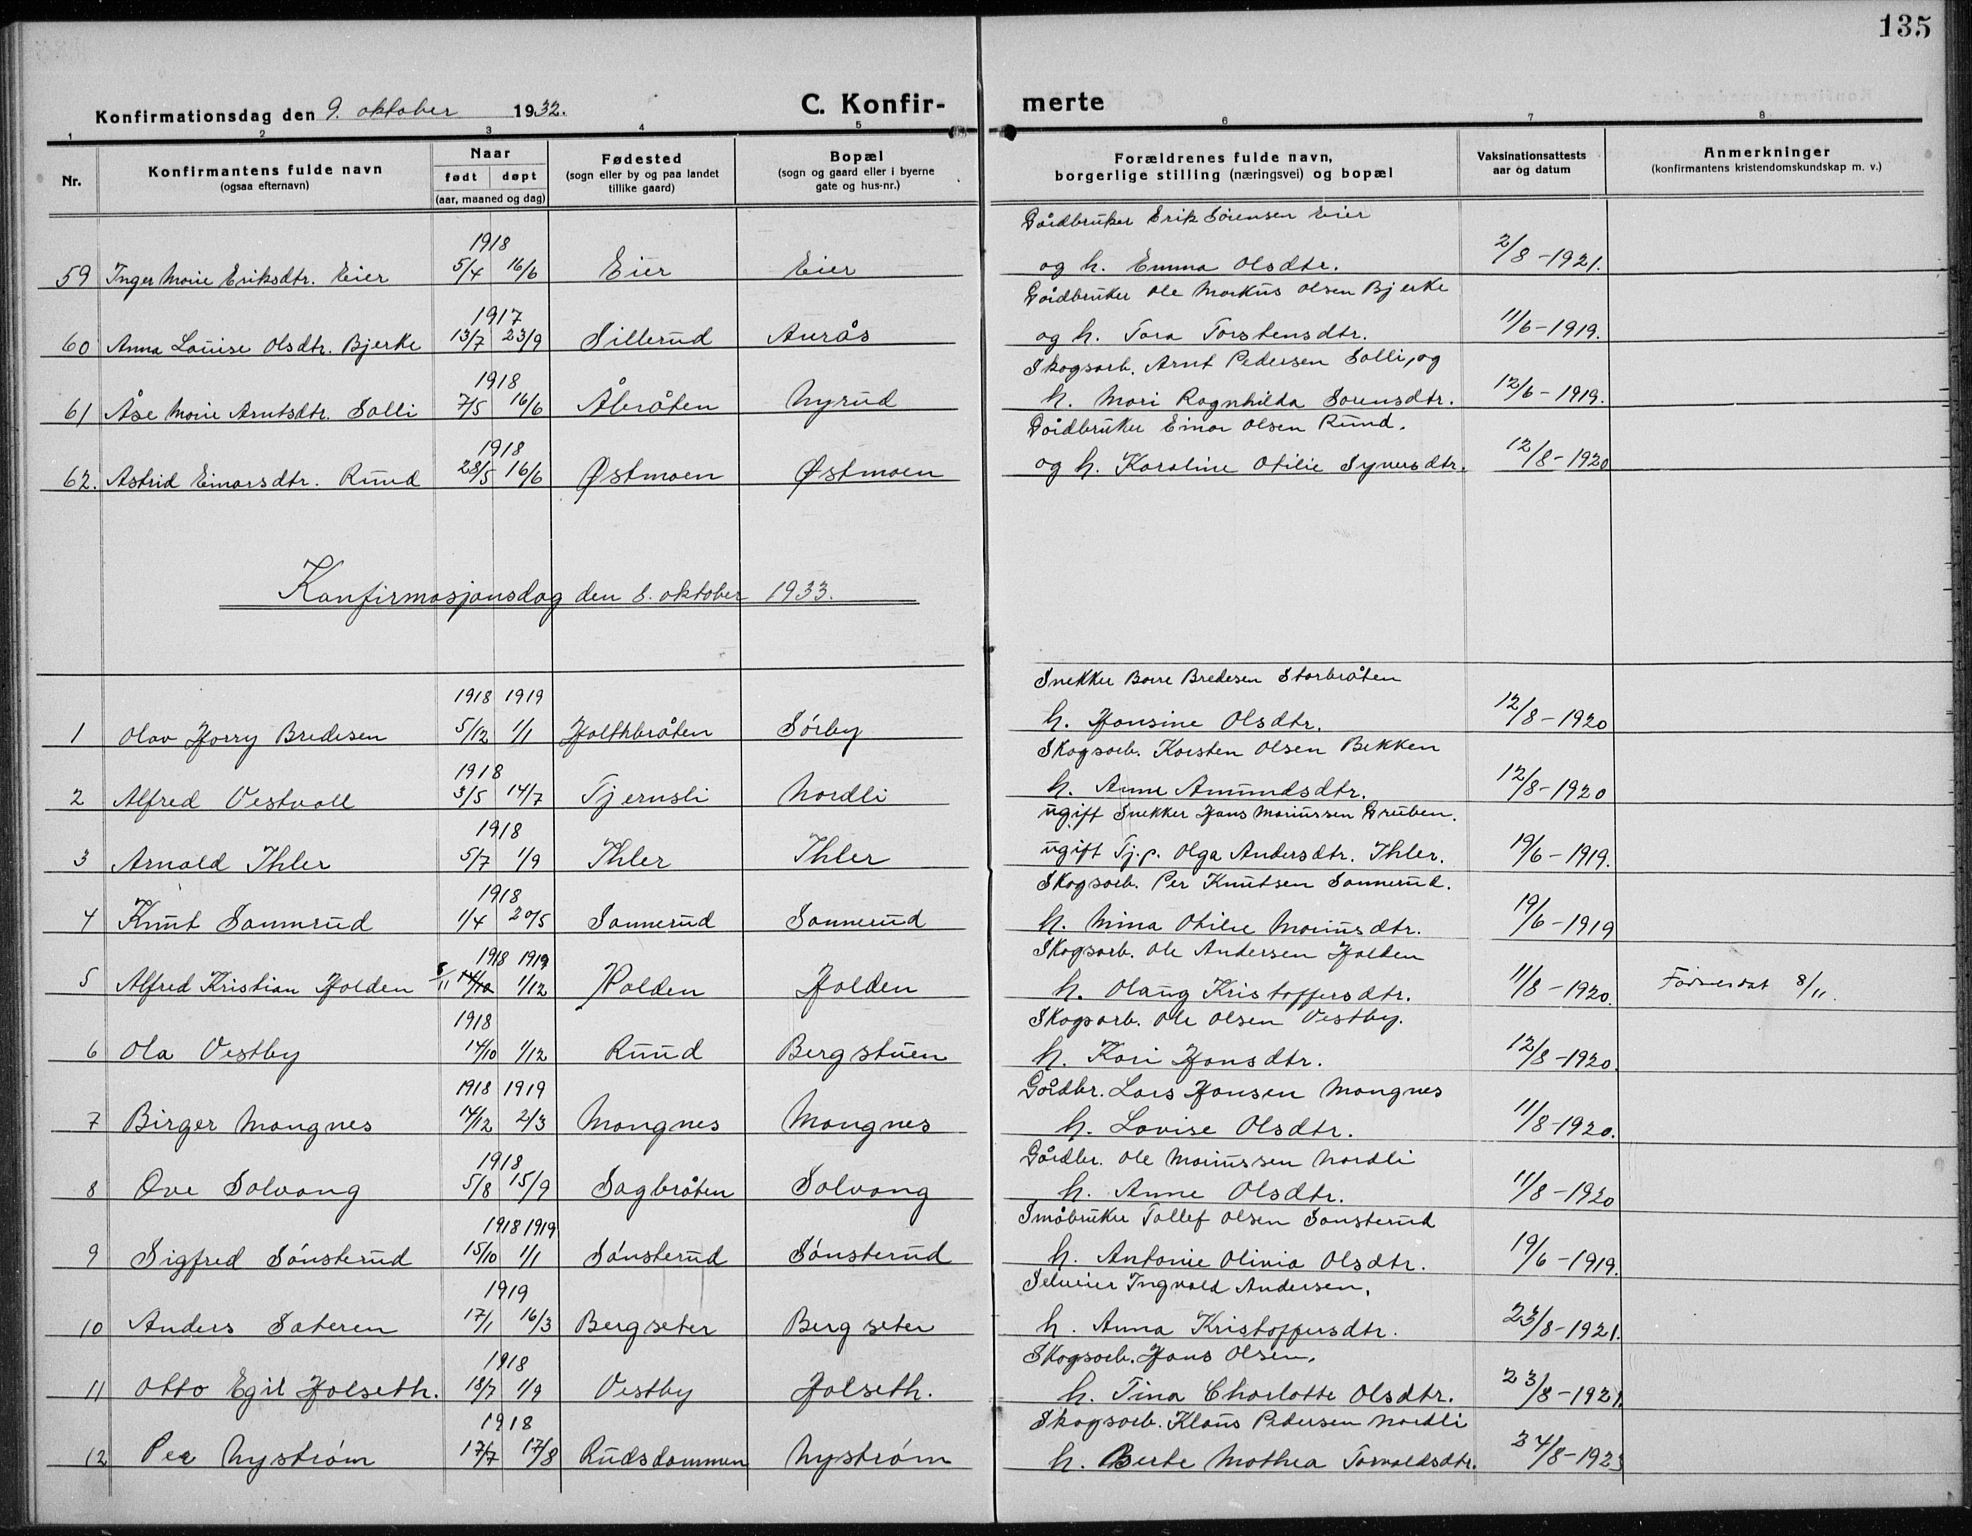 135
Konfirmationsdag den 9. oktober 1932. C. Konfirmerte
1 2 3 4 5 6 7 8
Nr. Konfirmantens fulde navn (ogsaa efternavn) Naar født døpt (aar, maaned og dag) Fødested (sogn eller by og paa landet tillike gaard) Bopæl (sogn og gaard eller i byerne gate og hus-nr.) Forældrenes fulde navn, borgerlige stilling (næringsvei) og bopæl Vaksinationsattests aar og datum Anmerkninger (konfirmantens kristendomskundskap m. v.)
1918 Gårdbruker Erik Sørensen Eier
59 Inger Marie Eriksdtr. Eier 5/4 16/6 Eier Eier og h. Emma Olsdtr. 2/8-1921.
1917 Gårdbruker Ole Markus Olsen Bjerke
60 Anna Louise Olsdtr. Bjerke 13/7 23/9 Sillerud Aurås og h. Tora Torstensdtr. 11/6-1919.
1918 Skogsarb. Arnt Pedersen Solli, og
61 Åse Marie Arntsdtr. Solli 7/5 16/6 Åbråten Nyrud h. Mari Ragnhilda Sorensdtr. 12/6-1919.
1918 Gårdbruker Einar Olsen Ruud.
62. Astrid Einarsdtr. Ruud 28/5 16/6 Østmoen Østmoen og h. Karoline Otilie Syversdtr. 12/8-1920
Konfirmasjonsdag den 8. oktober 1933.
1918 1919 Snekker Borre Bredesen Storbråten
1 Olav Harry Bredesen 5/12 1/1 Holthbråten Sørby h. Hansine Olsdtr. 12/8-1920
1918 Skogsarb. Karsten Olsen Bekken
2 Alfred Vestvoll 3/5 14/7 Tjernsli Nordli h. Anne Amundsdtr. 12/8-1920
1918 ugift Snekker Hans Mariussen Gruben.
3 Arnold Ihler 5/7 1/9 Ihler Ihler ugift Tj.p. Olga Andersdtr. Ihler. 19/6-1919.
1918 Skogsarb. Per Knutsen Sannerud.
4 Knut Sannrud 1/4 20/5 Sannerud Sannerud h. Nina Otilie Mariusdtr. 19/6-1919
1918 1919 Skogsarb. Ole Andersen Holden
5 Alfred Kristian Holden 8/11 14/10 1/12 Holden Holden h. Olaug Kristoffersdtr. 11/8-1920. 8/11.
1918 Skogsarb. Ole Olsen Vestby.
6 Ola Vestby 14/10 1/12 Ruud Bergstuen h. Kari Hansdtr. 12/8-1920.
1918 1919 Gårdbr. Lars Hansen Mangnes
7 Birger Mangnes 14/12 2/3 Mangnes Mangnes h. Lovise Olsdtr. 11/8-1920.
1918 Gårdbr. Ole Mariussen Nordli
8 Ove Solvang 5/8 15/9 Sagbråten Solvang h. Anne Olsdtr. 11/8-1920
1918 1919 Småbruker Tollef Olsen Sonsterud
9 Sigfred Sønsterud 15/10 1/1 Sønsterud Sønsterud h. Antonie Olivia Olsdtr. 19/6-1919.
1919 Selveier Ingvald Andersen,
10 Anders Sæteren 17/1 16/3 Bergseter Bergseter h. Anna Kristoffersdtr. 23/8-1921.
1918 Skogsarb. Hans Olsen,
11 Otto Egil Holseth. 18/7 1/9 Vestby Holseth. h. Tina Charlotte Olsdtr. 23/8-1921.
1918 Skogsarb. Klaus Pedersen Nordli
12 Per Nystrøm 17/7 17/8 Rudsdammen Nystrøm h. Berte Mathea Torvaldsdtr. 24/8-1923